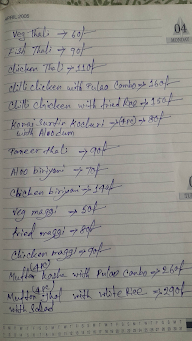 04
Veg Thali → 60/-
Fish Thali → 90/-
Chicken Thali → 110/-
chilli chicken with Pulao Combo → 160/-
Chilli chicken with fried Rice → 150/-
with Aloodum
Paneer thali → 90/-
Aloo biriyani → 70/-
Chicken biriyani →
Veg maggi → 50/-
fried maggi → 80/-
Chicken maggi → 90/-
Mutton Kosha with Pulao Combo → 260/-
Mutton Thali with white Rice → 290/-
with Salad